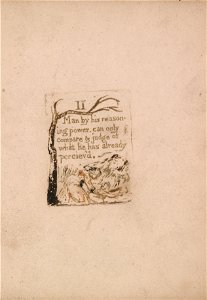 II
Man by his reason-
ing power, can only
compare & judge of
what he has already
perciev'd.